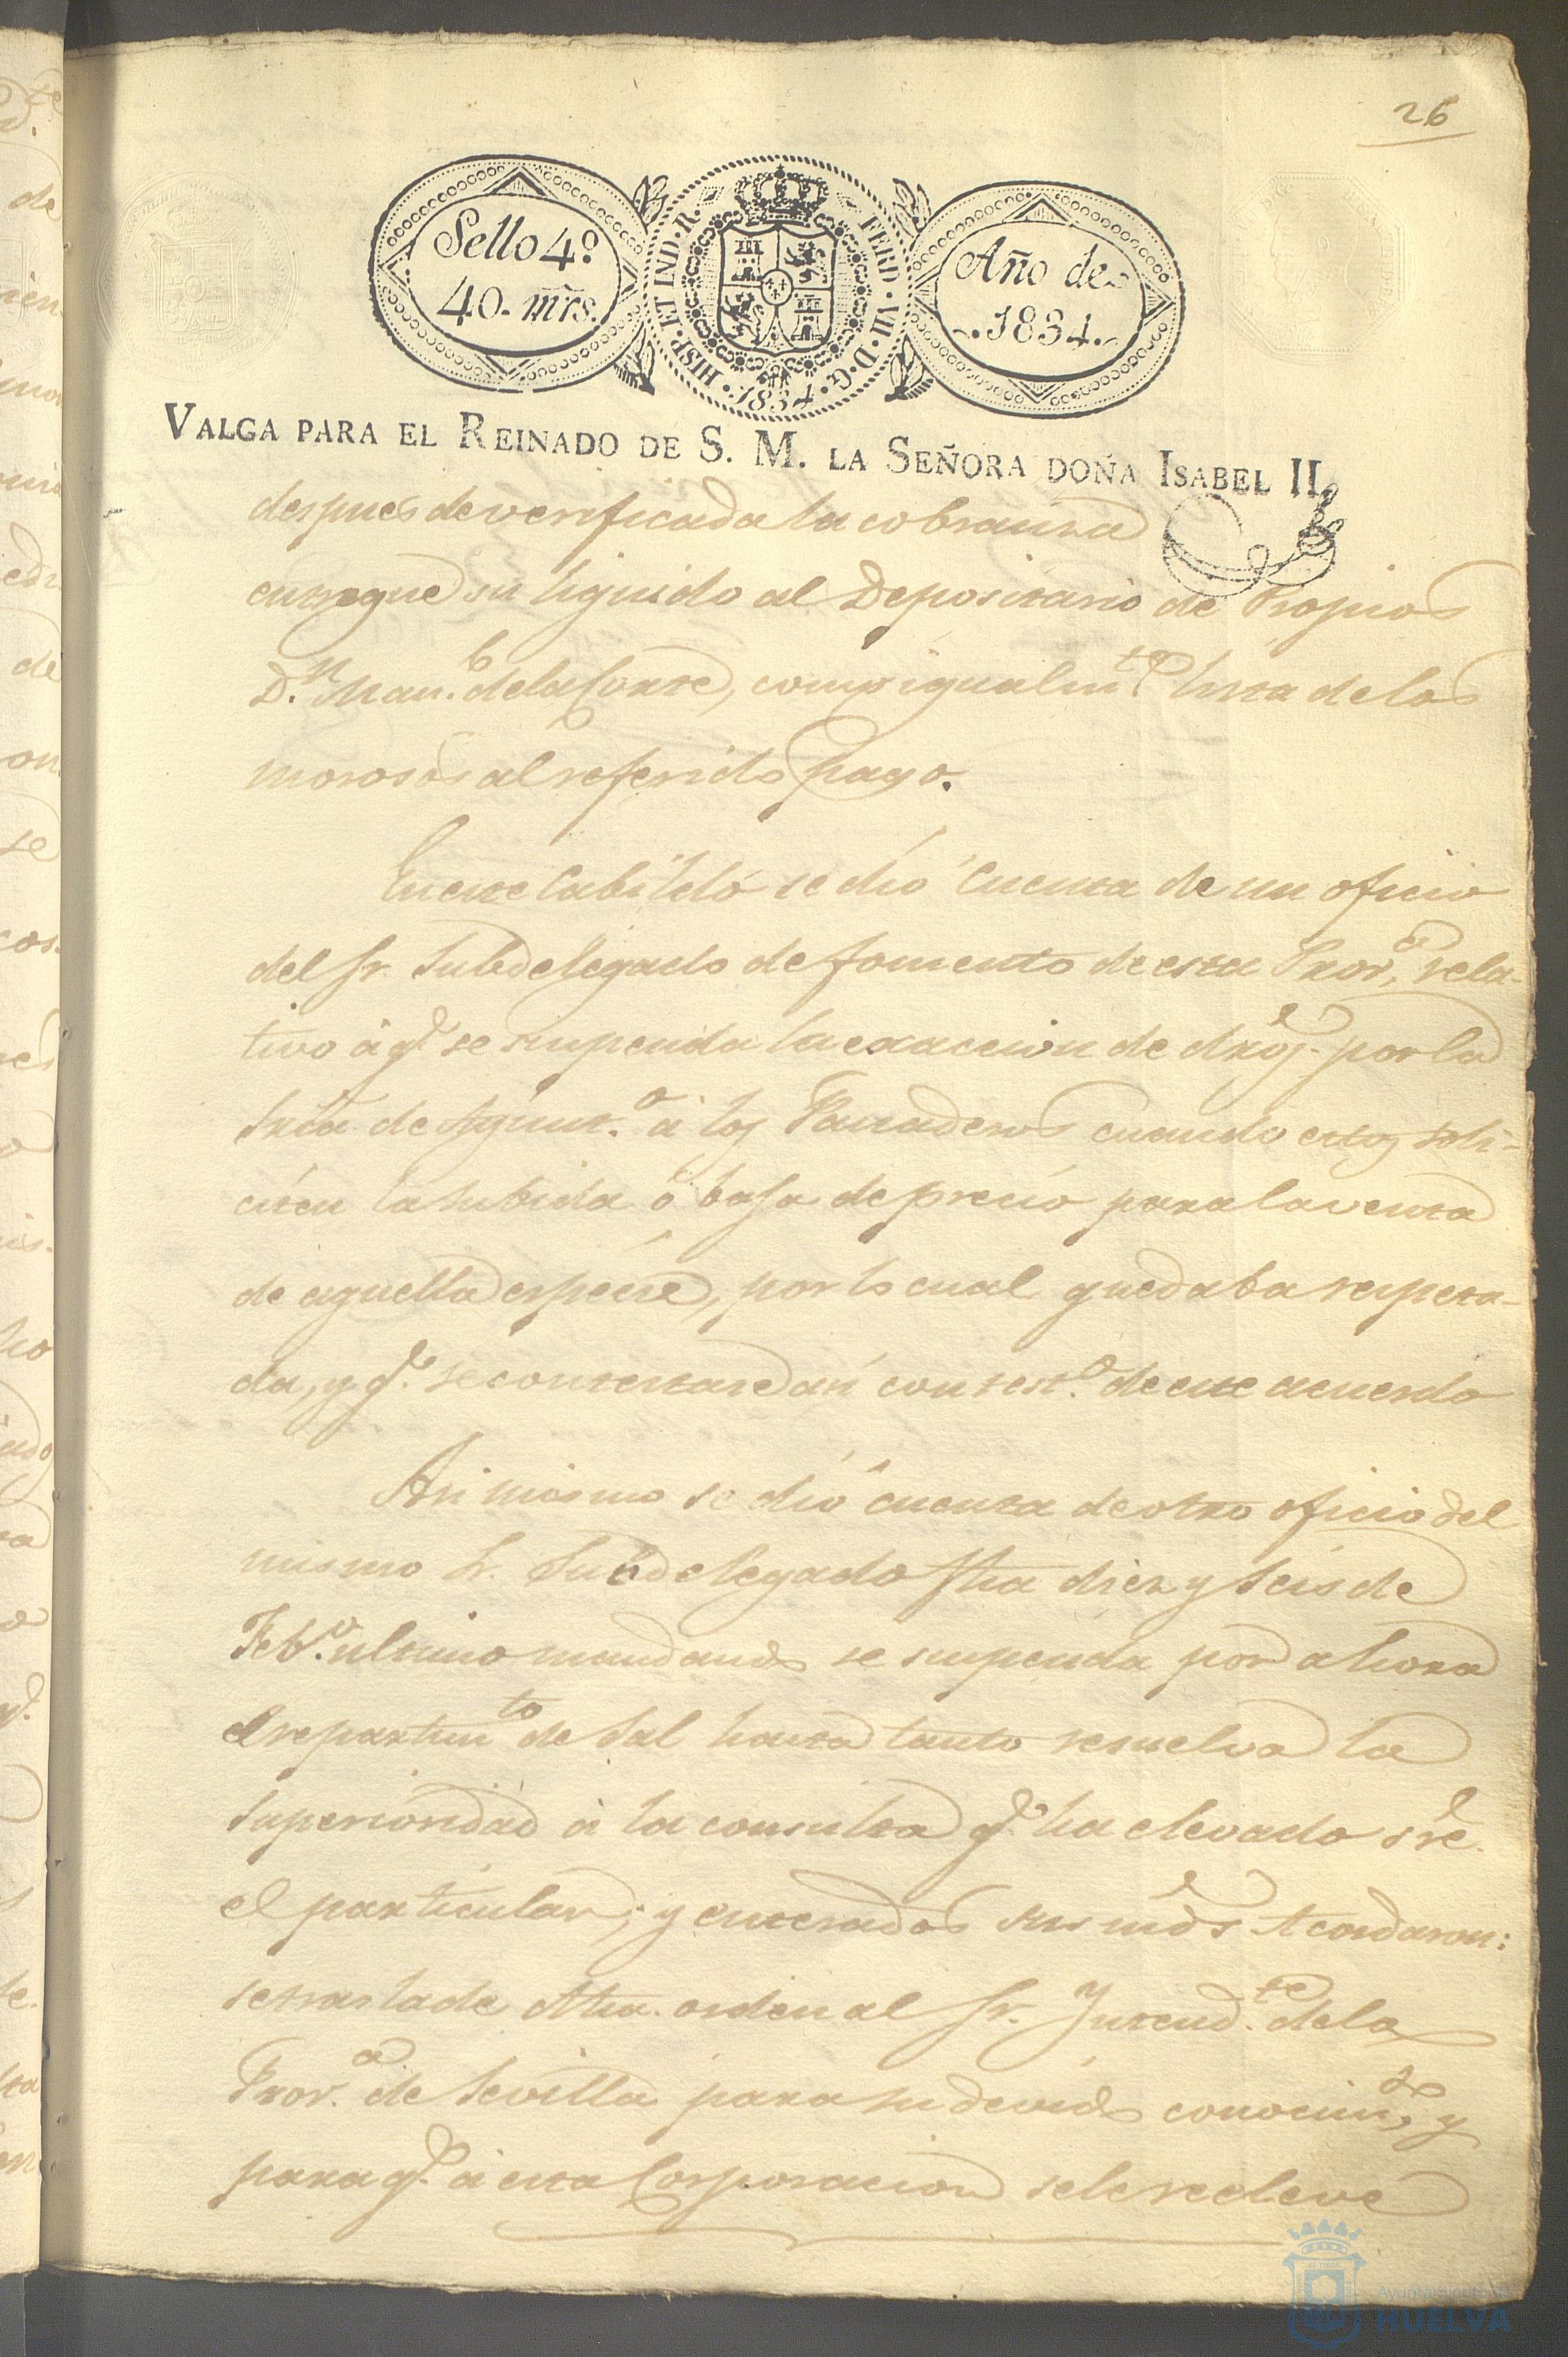 26
Sello 4º
40. mrs.
HISP. ET IND. R. FERD. VII. D. G. 1834.
Año de
1834.
VALGA PARA EL REINADO DE S. M. LA SEÑORA DOÑA ISABEL II.
despues de verificada la cobranza
entregue su liquido al Depositario de Propios
D.n Man.l de la Corte, como igualm.te lista de los
morosos al referido pago.
En este Cabildo se dió Cuenta de un oficio
del Sr. Subdelegado de fomento de esta Prov.a rela-
tivo á q.e se suspenda la exaccion de dros. por la
Sria. de Ayunt.o á los Panaderos cuando estos soli-
citen la subida ó baja de precio para la venta
de aquella especie, por lo cual quedaba respeta-
da, y q.e se contestase con test.o de este acuerdo
Asi mismo se dió cuenta de otro oficio del
mismo Sr. Subdelegado fha diez y seis de
Feb.o ultimo mandando se suspenda por ahora
el repartim.to de Sal hasta tanto resuelva la
Superioridad á la consulta q.e ha elevado sre.
el particular; y enterados sus mds. Acordaron:
se traslade dha. orden al Sr. Yntend.te de la
Prov.a de Sevilla para su devido conocim.to, y
para q.e á esta Corporacion se le releve
Ayuntamiento de
HUELVA